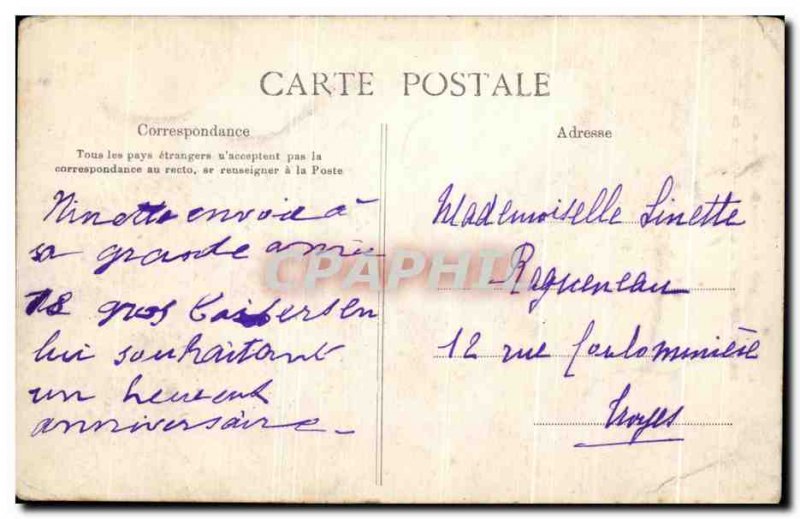 CARTE POSTALE
Correspondance
Tous les pays étrangers n'acceptent pas la
correspondance au recto, se renseigner à la Poste
Ninette envoie à
sa grande amie
18 gros baisers en
lui souhaitant
un heureux
anniversaire_
Adresse
Mademoiselle Linette
Ragueneau
12 rue Coulommière
Troyes
CPAPHIL